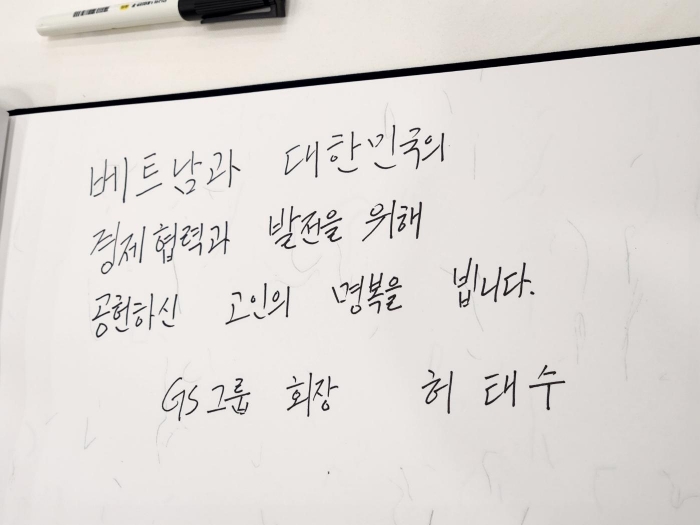 베트남과 대한민국의
경제협력과 발전을 위해
공헌하신 고인의 명복을 빕니다.
GS그룹 회장 허태수